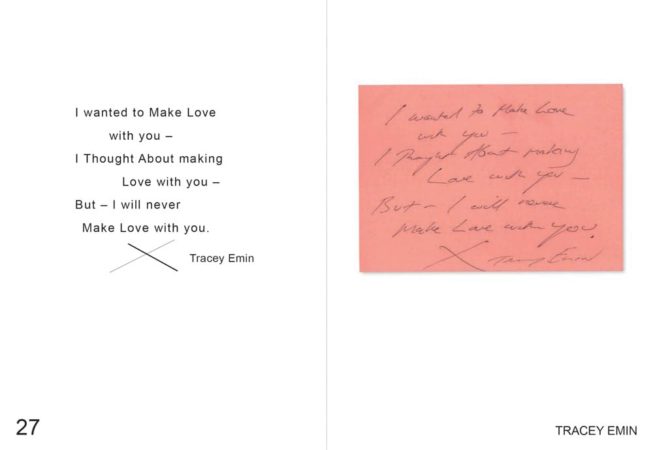 I wanted to Make Love
with you –
I Thought About making
Love with you –
But – I will never
Make Love with you.
Tracey Emin
27
I wanted to Make Love
with you –
I Thought About making
Love with you –
But – I will never
Make Love with you.
X Tracey Emin
TRACEY EMIN